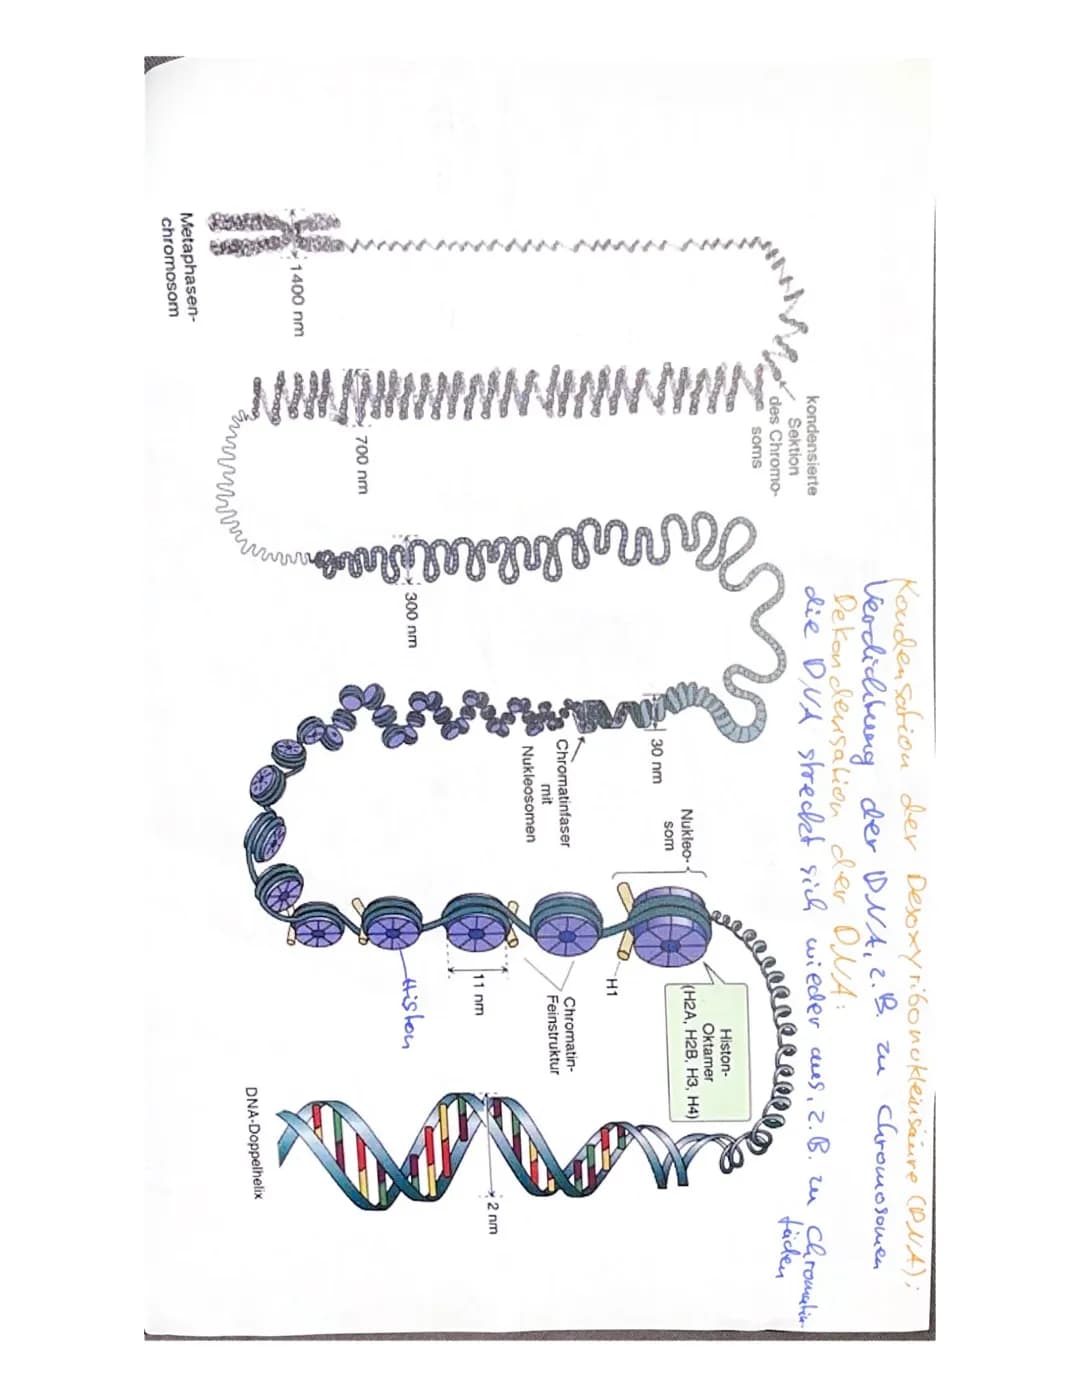 Kondensation der Desoxyribonukleinsäure (DNA):
Verdichtung der DNA, z.B. zu Chromosomen
Dekondensation der DNA:
die DNA streckt sich wieder aus, z.B. zu Chromatin-
fäden
kondensierte
Sektion
des Chromo-
soms
Metaphasen-
chromosom
1400 nm
700 nm
300 nm
30 nm
Chromatinfaser
mit
Nukleosomen
Nukleo-
som
H1
Histon-
Oktamer
(H2A, H2B, H3, H4)
Chromatin-
Feinstruktur
11 nm
Histon
2 nm
DNA-Doppelhelix